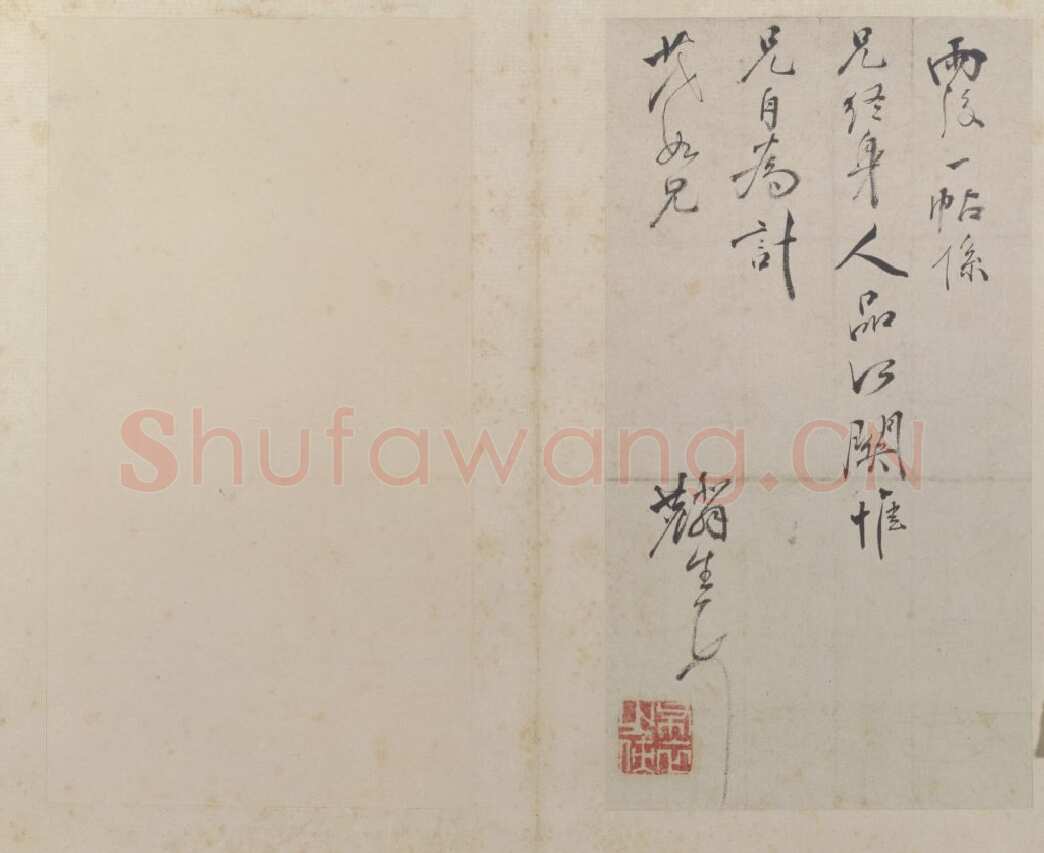 雨後一帖係
兄終身人品所關惟
兄自為計
茂如兄
麟生
Shufawang.CN